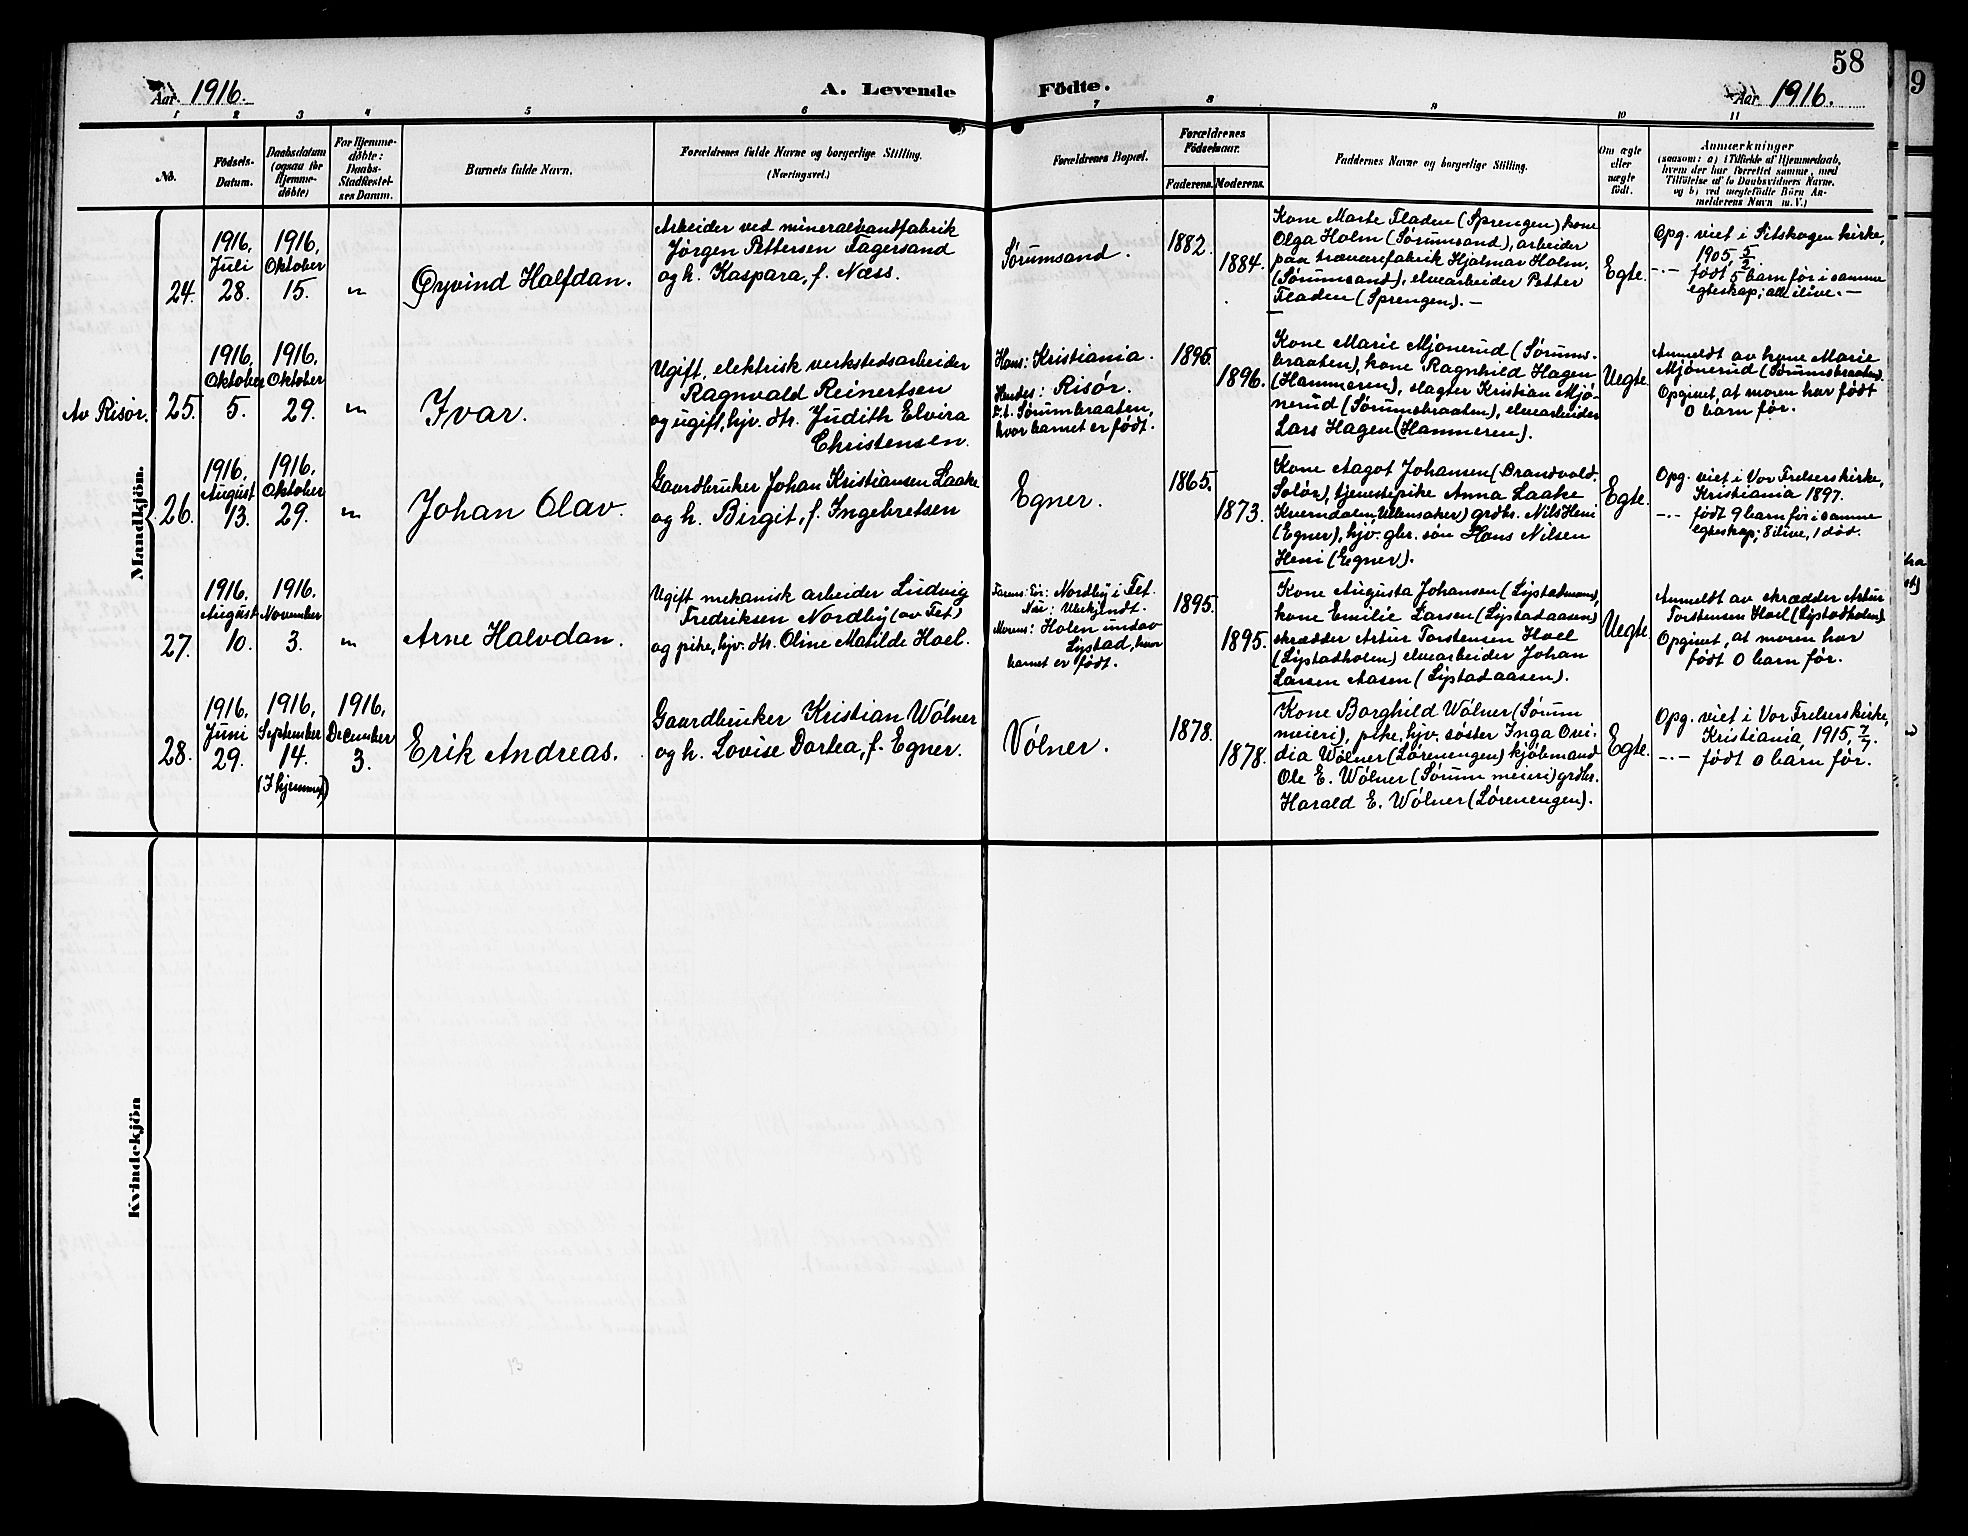 58
Aar 1916.
A. Levende Födte.
Aar 1916.
1 2 3 4 5 6 7 8 9 10 11
No.
Födsels-
Datum.
Daabsdatum
(ogsaa for
Hjemme-
döbte)
For Hjemme-
döbte:
Daabs-
Stadfæstel-
ses Datum.
Barnets fulde Navn.
Forældrenes fulde Navne og borgerlige Stilling.
(Næringsvei.)
Forældrenes Bopæl.
Forældrenes
Födselsaar.
Faderens. Moderens.
Faddernes Navne og borgerlige Stilling.
Om ægte
eller
uægte
födt.
Anmærkninger
(saasom: a) i Tilfælde af Hjemmedaab,
hvem der har forrettet samme, med
Tilföielse af to Daabsvidners Navne,
og b) ved uægtefödte Börn An-
melderens Navn m. V.)
Mandkjön.
24.
1916,
Juli
28.
1916,
Oktober
15.
"
Øyvind Halfdan.
Arbeider ved mineralvandfabrik
Jörgen Pettersen Fagersand
og h. Kaspara, f. Næss.
Sørumsand.
1882.
1884.
Kone Marte Fladen (Sprengen) kone
Olga Holm (Sørumsand), arbeider
paa trævarefabrik Hjalmar Holm,
(Sørumsand), elvearbeider Petter
Fladen (Sprengen). —
Egte.
Opg. viet i Setskogen kirke,
1905, 5/2.
-"- født 5 barn før i samme
egteskap; alle ilive. —
Av Risör.
25.
1916,
Oktober
5.
1916,
Oktober
29.
"
Ivar.
Ugift, elektrisk verkstedsarbeider
Ragnvald Reinertsen
og ugift, hjv. dtr. Judith Elvira
Christensen.
Hans: Kristiania.
Hendes: Risör.
F. t. Sørumbraaten,
hvor barnet er født.
1895.
1896.
Kone Marie Mjönerud (Sørums-
braaten), kone Ragnhild Hagen
(Hammeren), slagter Kristian Mjö-
nerud (Sørumsbraaten), elvearbeider
Lars Hagen (Hammeren).
Uegte.
Anmeldt av kone Marie
Mjönerud (Sørumsbraaten).
Opgivet, at moren har født
0 barn før.
26.
1916,
August
13.
1916,
Oktober
29.
"
Johan Olav.
Gaardbruker Johan Kristiansen Laake
og h. Birgit, f. Ingebretsen
Egner.
1865.
1873.
Kone Aagot Johansen (Brandvold,
Solör), tjenestepike Anna Laake
Kverndalen, Ullensaker) grdbr. Nils Heni
(Egner), hjv. gbr. søn Hans Nilsen
Heni (Egner).
Egte.
Opg. viet i Vor Frelsers kirke,
Kristiania 1897.
-"- født 9 barn før i samme
egteskap; 8 ilive, 1 død.
27.
1916.
August
10.
1916.
November
3.
"
Arne Halvdan.
Ugift mekanisk arbeider Ludvig
Fredriksen Nordby (av Fet)
og pike, hjv. dtr. Oline Matilde Hoel.
Farens: Eir: Nordby i Fet.
Nu: Ubekjendt.
Morens: Holen under
Lystad, hvor
barnet er født.
1895.
1895.
Kone Augusta Johansen (Lystadmoen),
kone Emilie Larsen (Lystadaasen)
skrædder Artur Torstensen Hoel
(Lystadholen) elvearbeider Johan
Larsen Aasen (Lystadaasen).
Uegte.
Anmeldt av skrædder Artur
Torstensen Hoel (Lystadholen)
Opgivet, at moren har
født 0 barn før.
28.
1916.
Juni
29.
1916,
September
14.
(I hjemmet)
1916,
December
3.
Erik Andreas.
Gaardbruker Kristian Wölner
og h. Lovise Dortea, f. Egner.
Völner.
1878.
1878.
Kone Borghild Wölner (Sørum
meieri), pike, hjv. søster Inga Ovi-
dia Wölner (Lørenengen) kjöbmand
Ole E. Wölner (Sørum meieri) grdbr.
Harald E. Wölner (Lørenengen).
Egte.
Opg. viet i Vor Frelsers kirke,
Kristiania, 1915, 7/7.
-"- født 0 barn før.
Kvindekjön